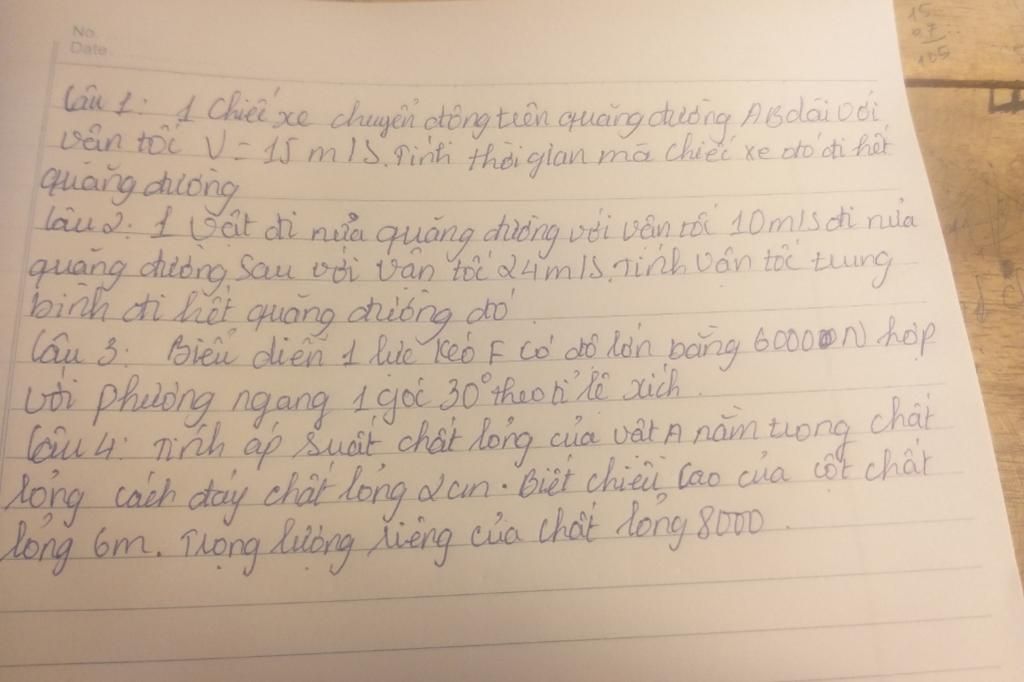 No.
Date
15
0.7
105
Câu 1: 1 Chiếc xe chuyển động trên quãng đường AB dài với
vận tốc V = 15 m/s. Tính thời gian mà chiếc xe đó đi hết
quãng đường
Câu 2: 1 vật đi nửa quãng đường với vận tốc 10m/s đi nửa
quãng đường sau với vận tốc 24m/s. Tính vận tốc trung
bình đi hết quãng đường đó.
Câu 3: Biểu diễn 1 lực kéo F có độ lớn bằng 60000N hợp
với phương ngang 1 góc 30° theo tỉ lệ xích.
Câu 4: Tính áp suất chất lỏng của vật A nằm trong chất
lỏng cách đáy chất lỏng 2cm. Biết chiều cao của cột chất
lỏng 6m. Trọng lượng riêng của chất lỏng 8000.